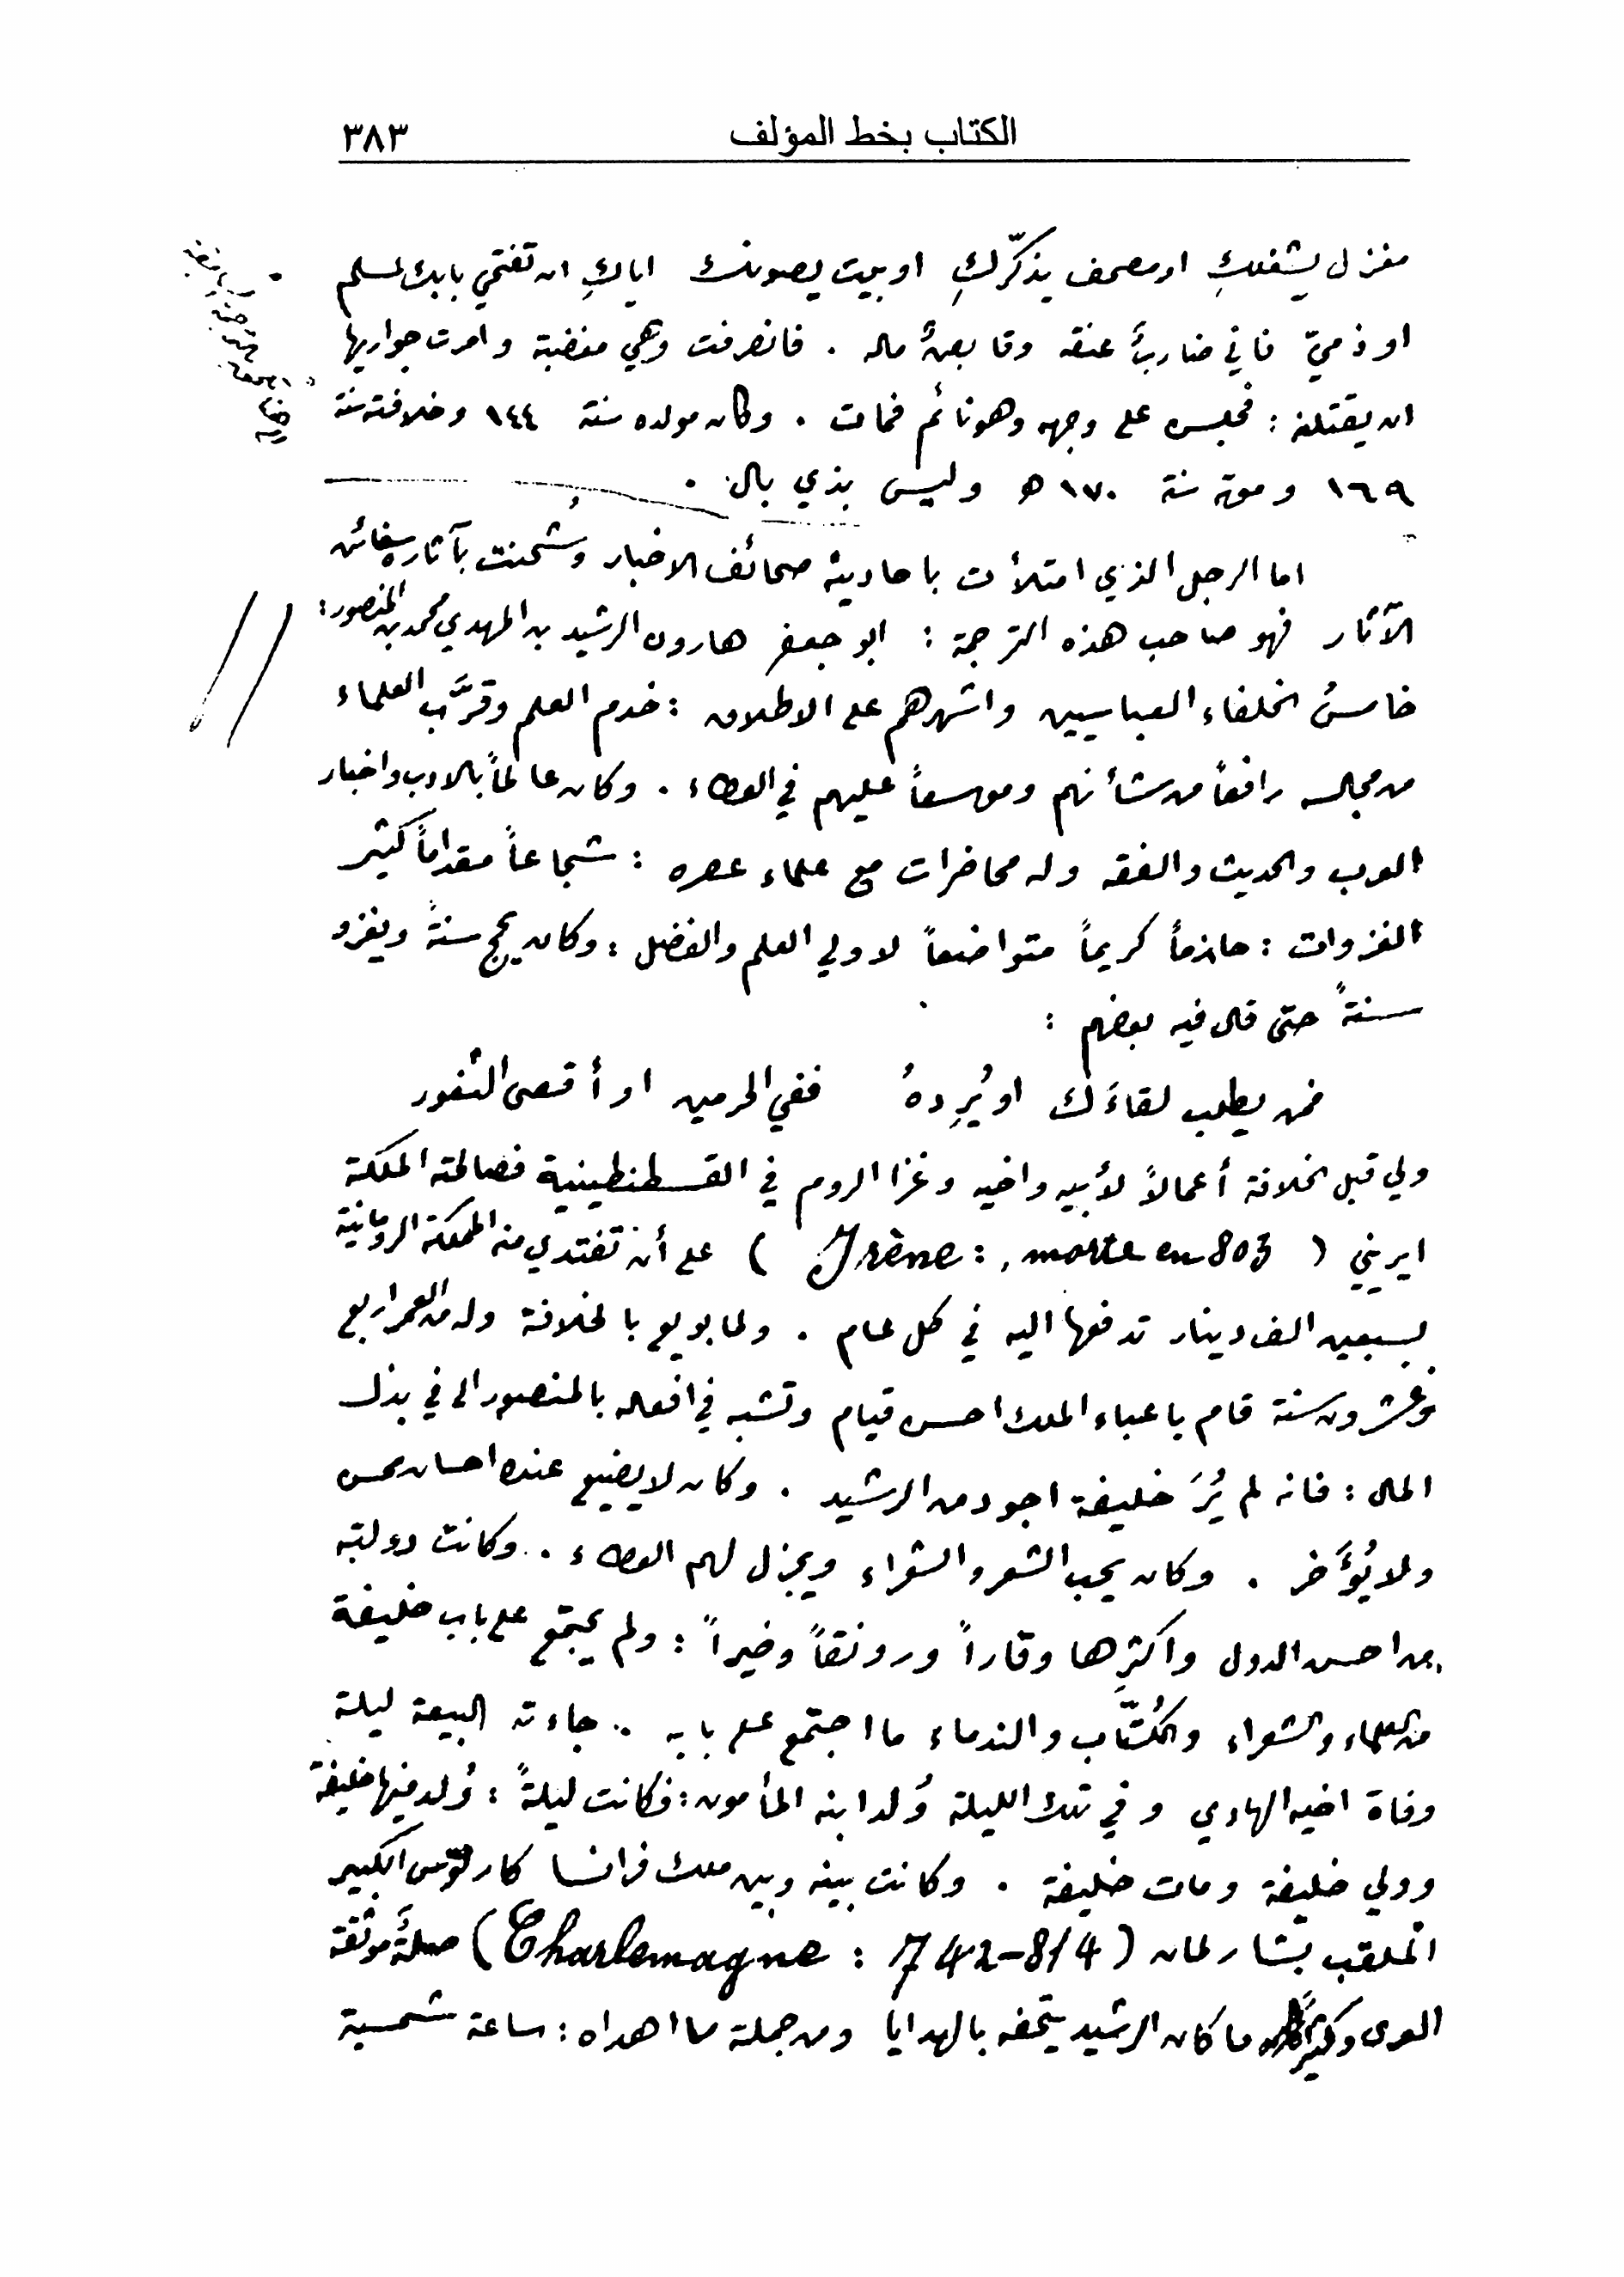 الكتاب بخط المؤلف ٣٨٣
مغزل يشغلكِ او مصحف يذكّركِ او بيت يصونك اياكِ ان تفتحي بابك لمسلم
او ذميّ فاني ضاربٌ عنقه وقابضٌ ماله . فانصرفت وهي مغضبة وامرت جواريها
ان يقتلنه : فجلسن على وجهه وهو نائم فمات . وكان مولده سنة ١٤٤ وخلافته سنة
١٦٩ وموته سنة ١٧٠ ه وليس بذي بال .
اما الرجل الذي امتلأت باحاديثه صحائف الاخبار وشُحنت بآثاره سفائن
الآثار فهو صاحب هذه الترجمة : ابو جعفر هارون الرشيد بن المهدي محمد بن المنصور :
خامسُ الخلفاء العباسيين واشهرهم على الاطلاق : خدم العلم وقرَّب العلماء
من مجالسه رافعاً من شأنهم وموسعاً عليهم في العطاء . وكان عالماً بالادب واخبار
العرب والحديث والفقه وله محاضرات مع علماء عصره : شجاعاً مقداماً كثير
الغزوات : حازماً كريماً متواضعاً لاولي العلم والفضل : وكان يحج سنةً ويغزو
سنةً حتى قال فيه بعضهم :
فمن يطلب لقاءَك او يُرِدهُ ففي الحرمين او أقصى الثغور
ولي قبل الخلافة أعمالاً لأبيه واخيه وغزا الروم في القسطنطينية فصالحته الملكة
ايريني ( Irène : , morte en 803 ) على أن تفتدي منه المملكة الرومانية
بسبعين الف دينار تدفعها اليه في كل عام . ولما بويع بالخلافة وله من العمر اربع
وعشرون سنة قام باعباء الملك احسن قيام وتشبه في افعاله بالمنصور الا في بذل
المال : فانه لم يُرَ خليفة اجود من الرشيد . وكان لا يضيع عنده احسان محسن
ولا يُؤَخر . وكان يحب الشعر والشعراء ويجزل لهم العطاء . وكانت دولته
من احسن الدول واكثرِها وقاراً ورونقاً وخيراً : ولم يجتمع على باب خليفة
من العلماء والشعراء والكُتّاب والندماء ما اجتمع على بابه . جاءته البيعة ليلة
وفاة اخيه الهادي وفي تلك الليلة وُلد ابنه المأمون : فكانت ليلةً : وُلد فيها خليفة
وولي خليفة ومات خليفة . وكانت بينه وبين ملك فرانسا كارلوس الكبير
الملقب بشارلمان ( Charlemagne : 742-814 ) صلةٌ موثقة
العرى وكثيراً ما كان الرشيد يتحفه بالهدايا ومن جملة ما اهداه : ساعة شمسية